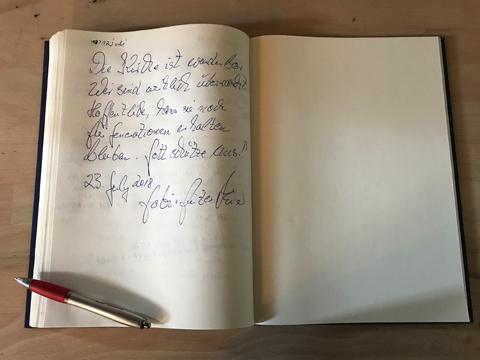 Die Kirche ist wunderbar
Wir sind wirklich überrascht
Hoffentlich, kann sie noch
für Generationen erhalten
bleiben. Gott schütze uns!
23. July 2018